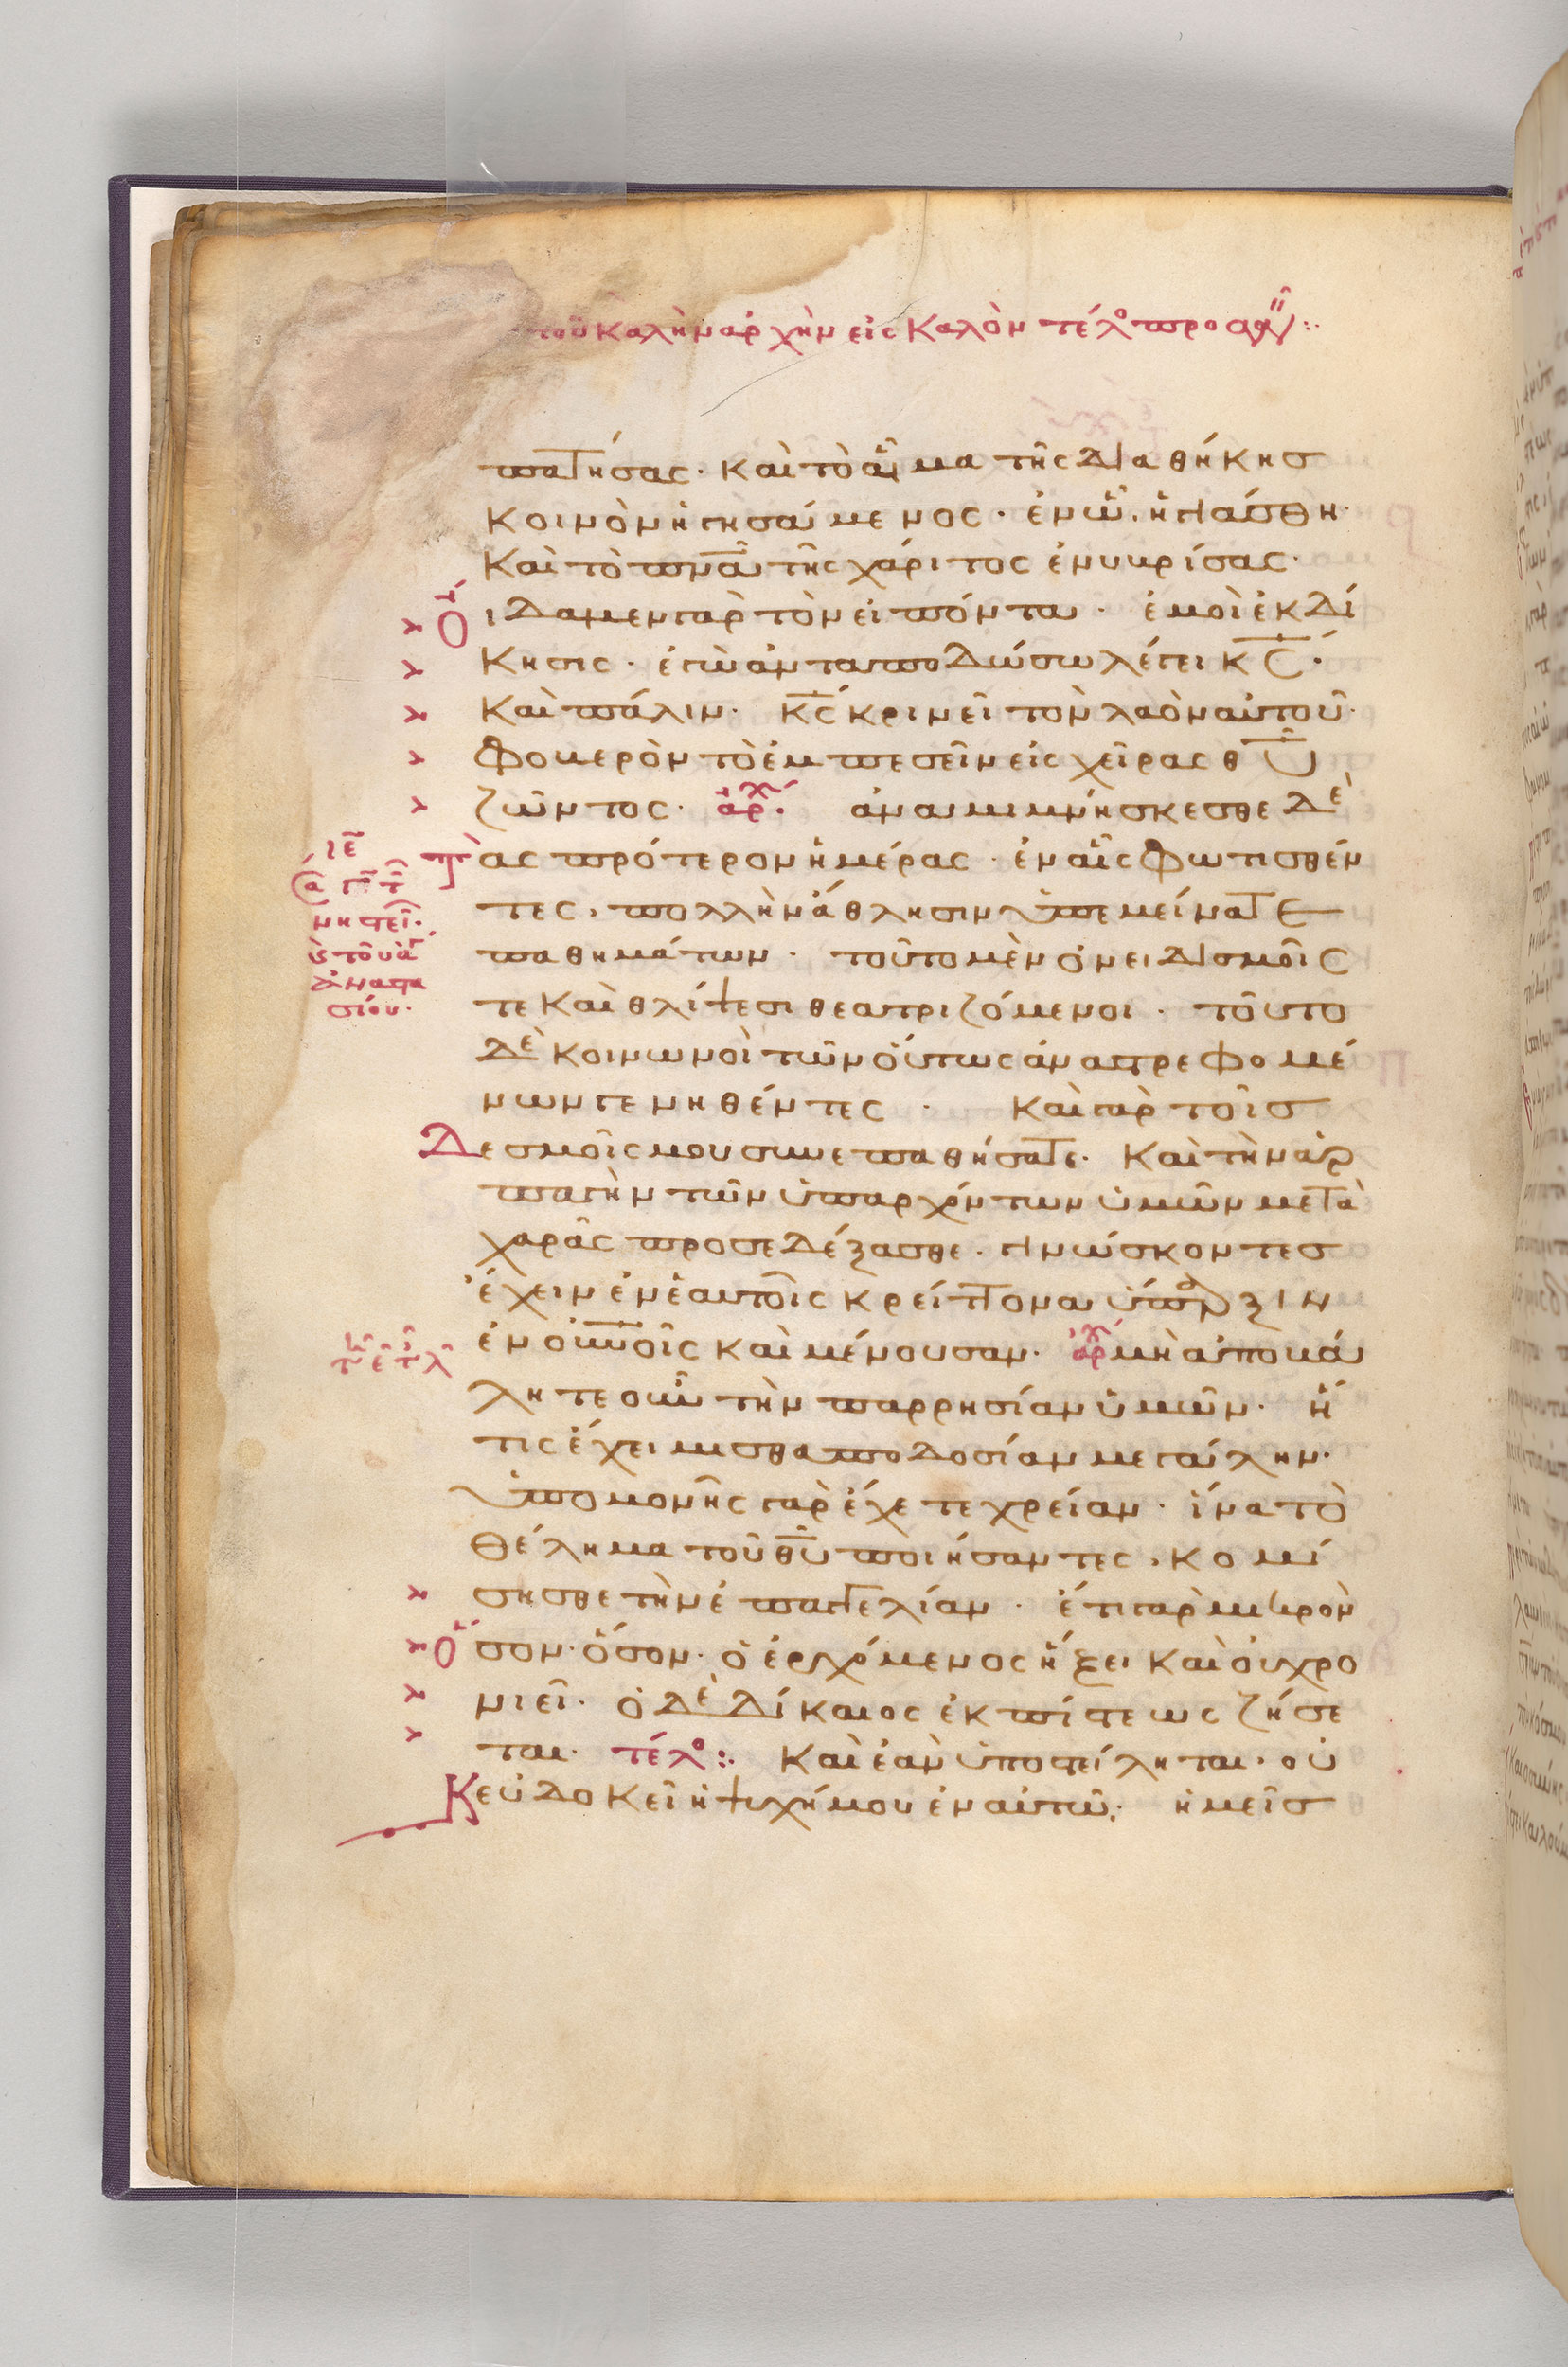 τοῦ καλὴν ἀρχὴν εἰς καλὸν τέλο προ
πατήσας· καὶ τὸ αἷμα τῆς διαθήκησ
κοινὸν ἡγησάμενος· ἐν ὧ, ἡγιάσθη·
καὶ τὸ πνᾶ τῆς χάριτος ἐνυβρίσας·
Οἴδαμεν γὰρ τὸν εἰπόντα· ἐμοὶ ἐκδί
κησις· ἐγὼ ἀνταποδώσω λέγει κς·
καὶ πάλιν· κς κρινεῖ τὸν λαὸν αὐτοῦ·
φοβερὸν τὸ ἐμπεσεῖν εἰς χεῖρας θυ
ζῶντος· ἀρχ· ἀναμιμνήσκεσθε δὲ
Τὰς πρότερον ἡμέρας· ἐν αἷς φωτισθέν
τες, πολλὴν ἄθλησιν ὑπεμείνατε
παθημάτων· τοῦτο μὲν ὀνειδισμοῖς
τε καὶ θλίψεσι θεατριζόμενοι· τοῦτο
δὲ κοινωνοὶ τῶν οὕτως ἀναστρεφομέ
νων γενηθέντες· καὶ γὰρ τοῖσ
Δεσμοῖς μου συνεπαθήσατε· καὶ τὴν ἁρ
παγὴν τῶν ὑπαρχόντων ὑμῶν μετὰ
χαρᾶς προσεδέξασθε· γινώσκοντεσ
ἔχειν ἐν ἑαυτοῖς κρείττονα ὕπαρξιν
ἐν οὐνοῖς καὶ μένουσαν· ἀρχ μὴ ἀποβά
λητε οὖν τὴν παρρησίαν ὑμῶν· ἥ
τις ἔχει μισθαποδοσίαν μεγάλην·
ὑπομονῆς γὰρ ἔχετε χρείαν· ἵνα τὸ
θέλημα τοῦ θυ ποιήσαντες, κομί
σησθε τὴν ἐπαγγελίαν· ἔτι γὰρ μικρὸν
Ὅσον· ὅσον· ὁ ἐρχόμενος ἥξει καὶ οὐ χρο
νιεῖ· ὁ δὲ δίκαιος ἐκ πίστεως ζήσε
ται· τέλο: καὶ ἐὰν ὑποστείληται· οὐ
Κ εὐδοκεῖ ἡ ψυχή μου ἐν αὐτῶ· ἡμεῖσ
νηστεῖ·
τοῦ ἁ
ἀναστα
σίου·